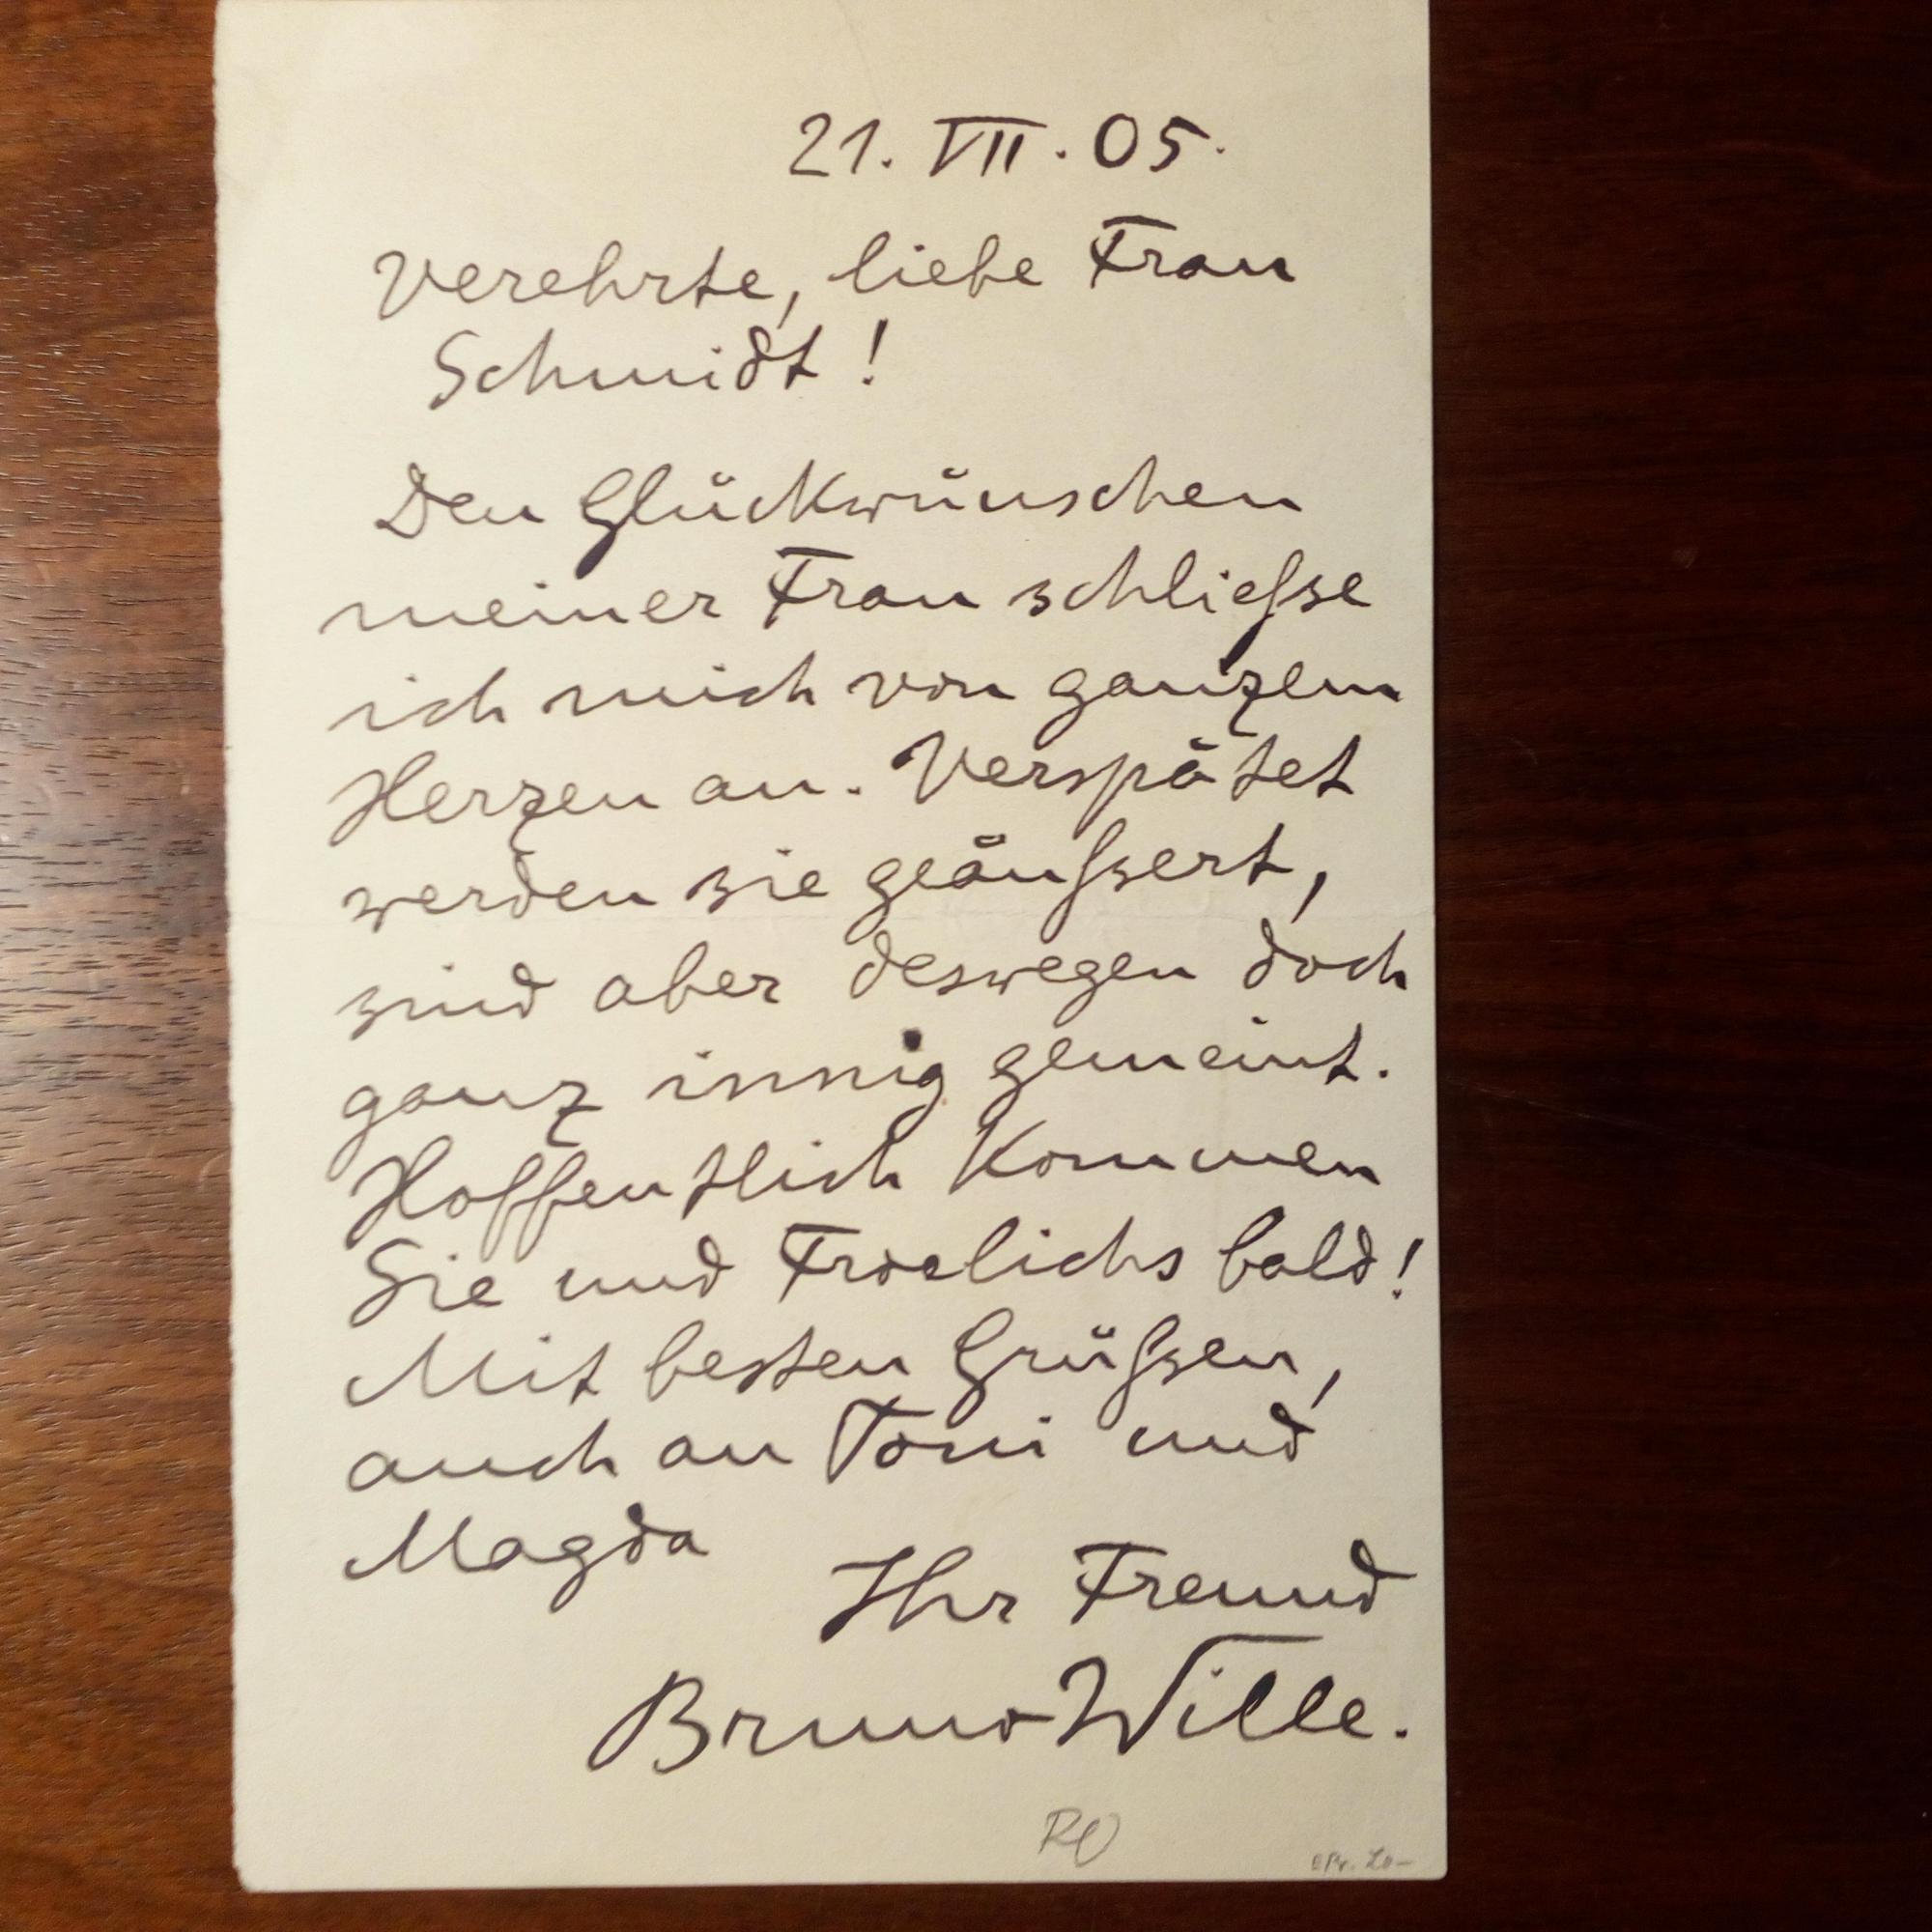 21. VII. 05.
Verehrte, liebe Frau
Schmidt!
Den Glückwünschen
meiner Frau schließe
ich mich von ganzem
Herzen an. Verspätet
werden sie geäußert,
sind aber deswegen doch
ganz innig gemeint.
Hoffentlich kommen
Sie und Froelichs bald!
Mit besten Grüßen,
auch an Toni und
Magda
Ihr Freund
Bruno Wille.